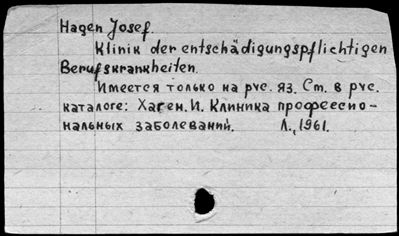 Hagen Josef.
Klinik der entschädigungspflichtigen
Berufskrankheiten.
Имеется только на рус. яз. См. в рус.
каталоге: Хаген. И. Клиника професcио-
нальных заболеваний. Л., 1961.